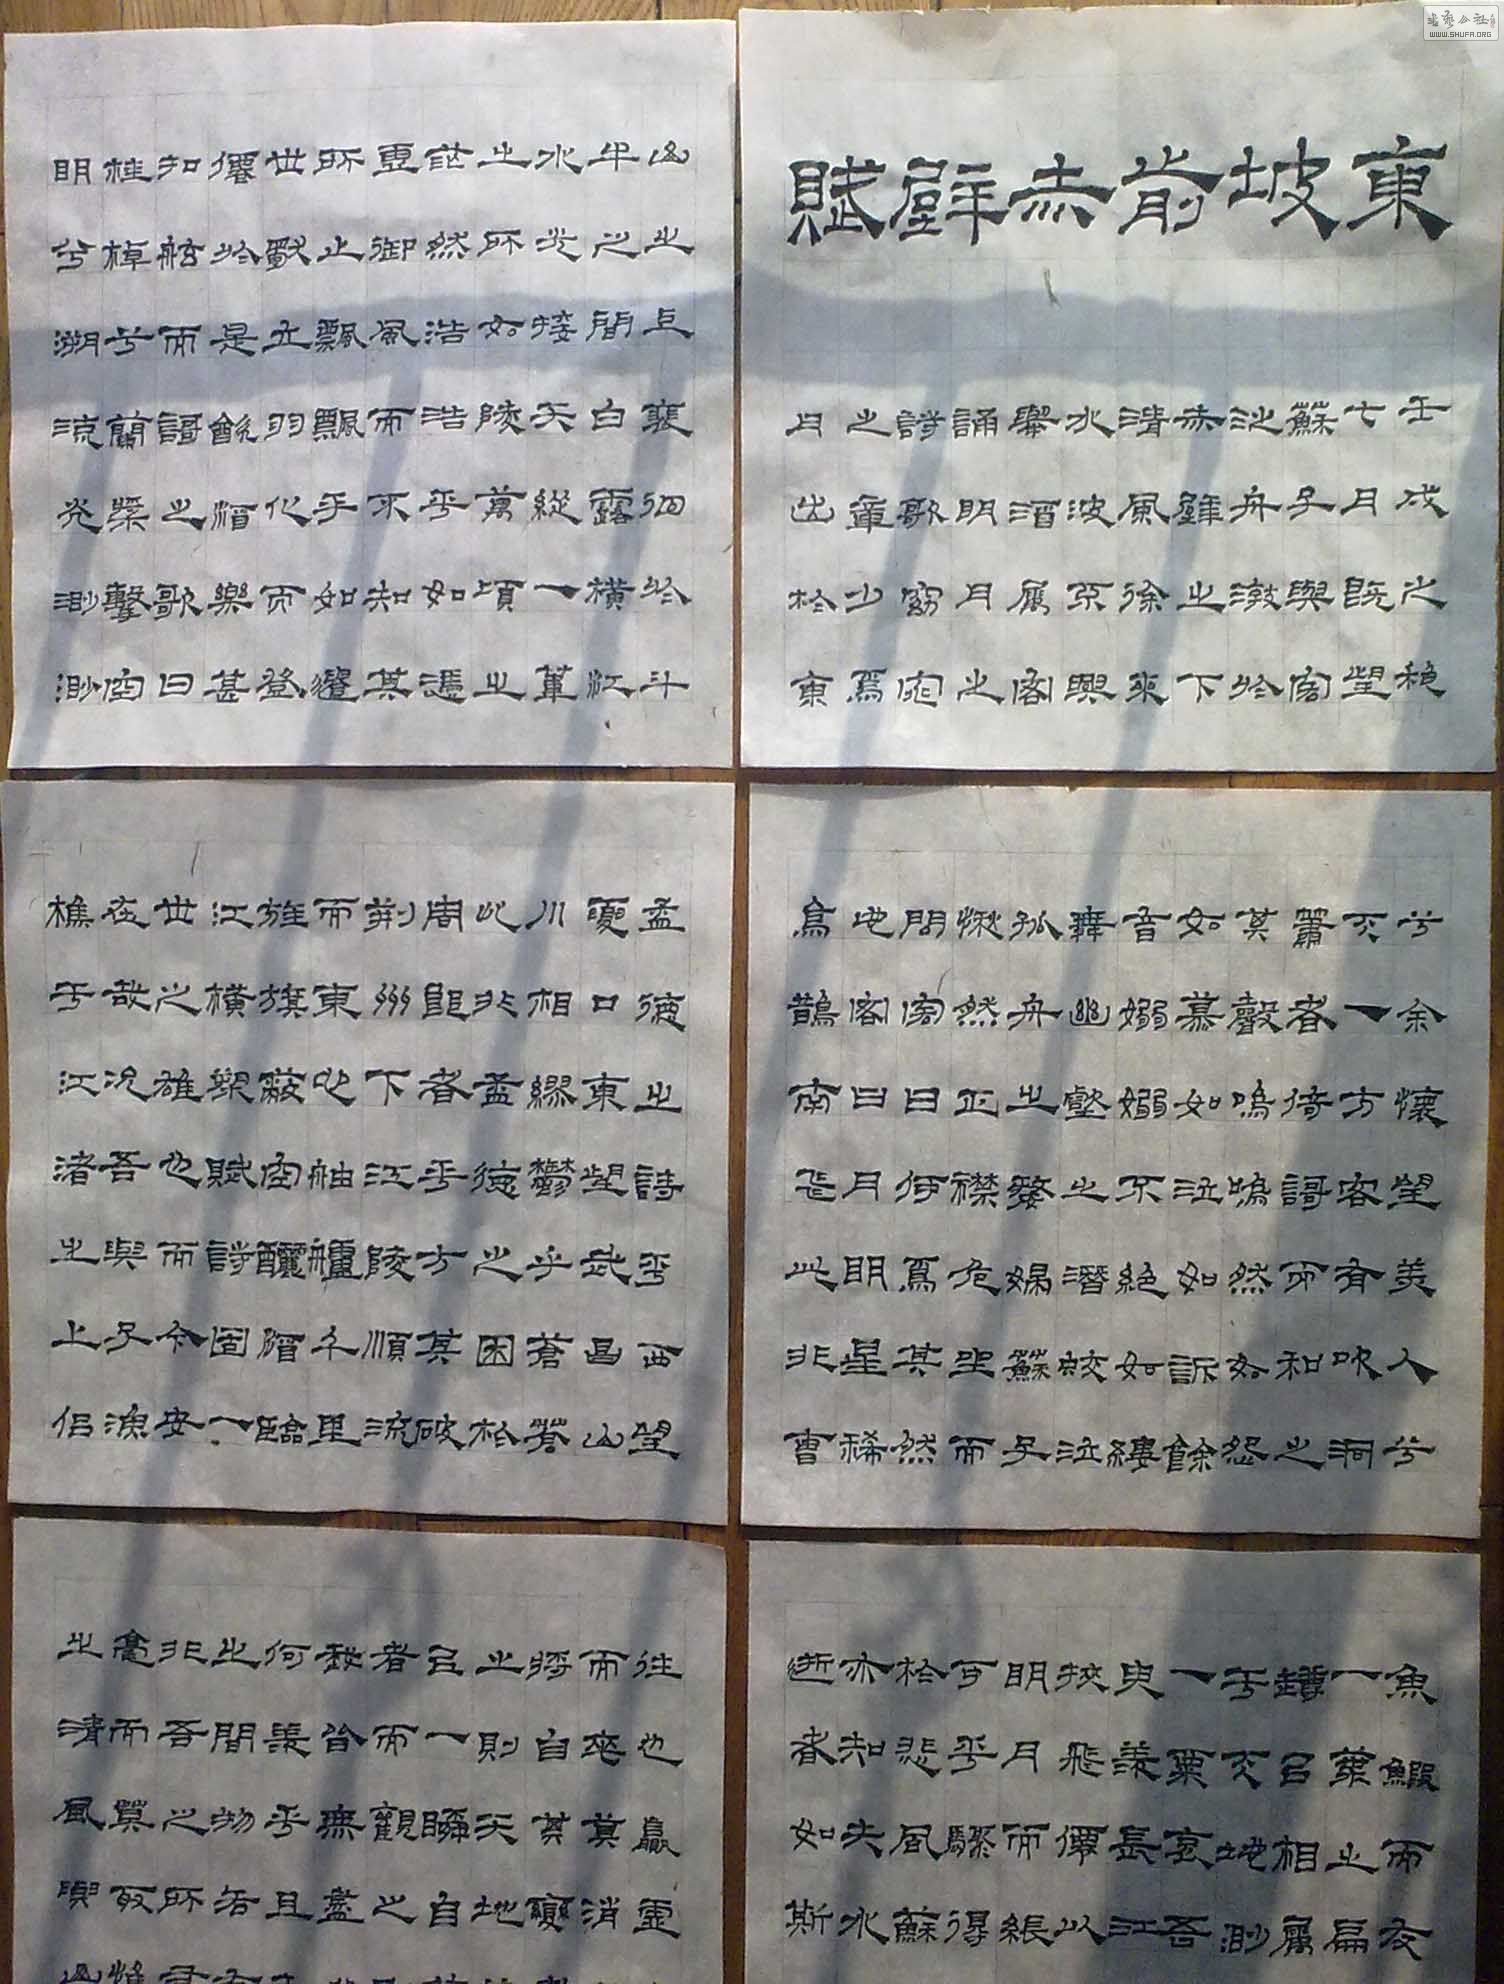 東坡前赤壁賦
壬戌之秋
七月既望
蘇子與客
泛舟游於
赤壁之下
清風徐來
水波不興
舉酒屬客
誦明月之
詩歌窈窕
之章少焉
月出於東
山之上徘徊於斗
牛之間白露橫江
水光接天縱一葦
之所如陵萬頃之
茫然浩浩乎如憑
虛御風而不知其
所止飄飄乎如遺
世獨立羽化而登
僊於是飲酒樂甚
扣舷而謌之歌曰
桂棹兮蘭槳擊空
明兮溯流光渺渺
兮余懷望美人兮
天一方客有吹洞
簫者倚謌而和之
其聲嗚嗚然如怨
如慕如泣如訴餘
音嫋嫋不絕如縷
舞幽壑之潛蛟泣
孤舟之嫠婦蘇子
愀然正襟危坐而
問客曰何為其然
也客曰月明星稀
烏鵲南飛此非曹
孟德之詩乎西望
夏口東望武昌山
川相繆鬱乎蒼蒼
此非孟德之困於
周郎者乎方其破
荊州下江陵順流
而東也舳艫千里
旌旗蔽空釃酒臨
江橫槊賦詩固一
世之雄也而今安
在哉況吾與子漁
樵于江渚之上侶
魚鰕而友
一葉之扁
罇以相屬
于天地渺
一粟哀吾
臾羨長江
挾飛僊以
明月而
可乎驟得
於悲風蘇
亦知夫水
逝者如斯
往也贏虛
而卒莫消
將自其變
之則天地
以一瞬自
者而觀之
我皆無盡
何羨乎且
之間物各
非吾之所
毫而莫取
之清風與
WWW.SHUFA.ORG